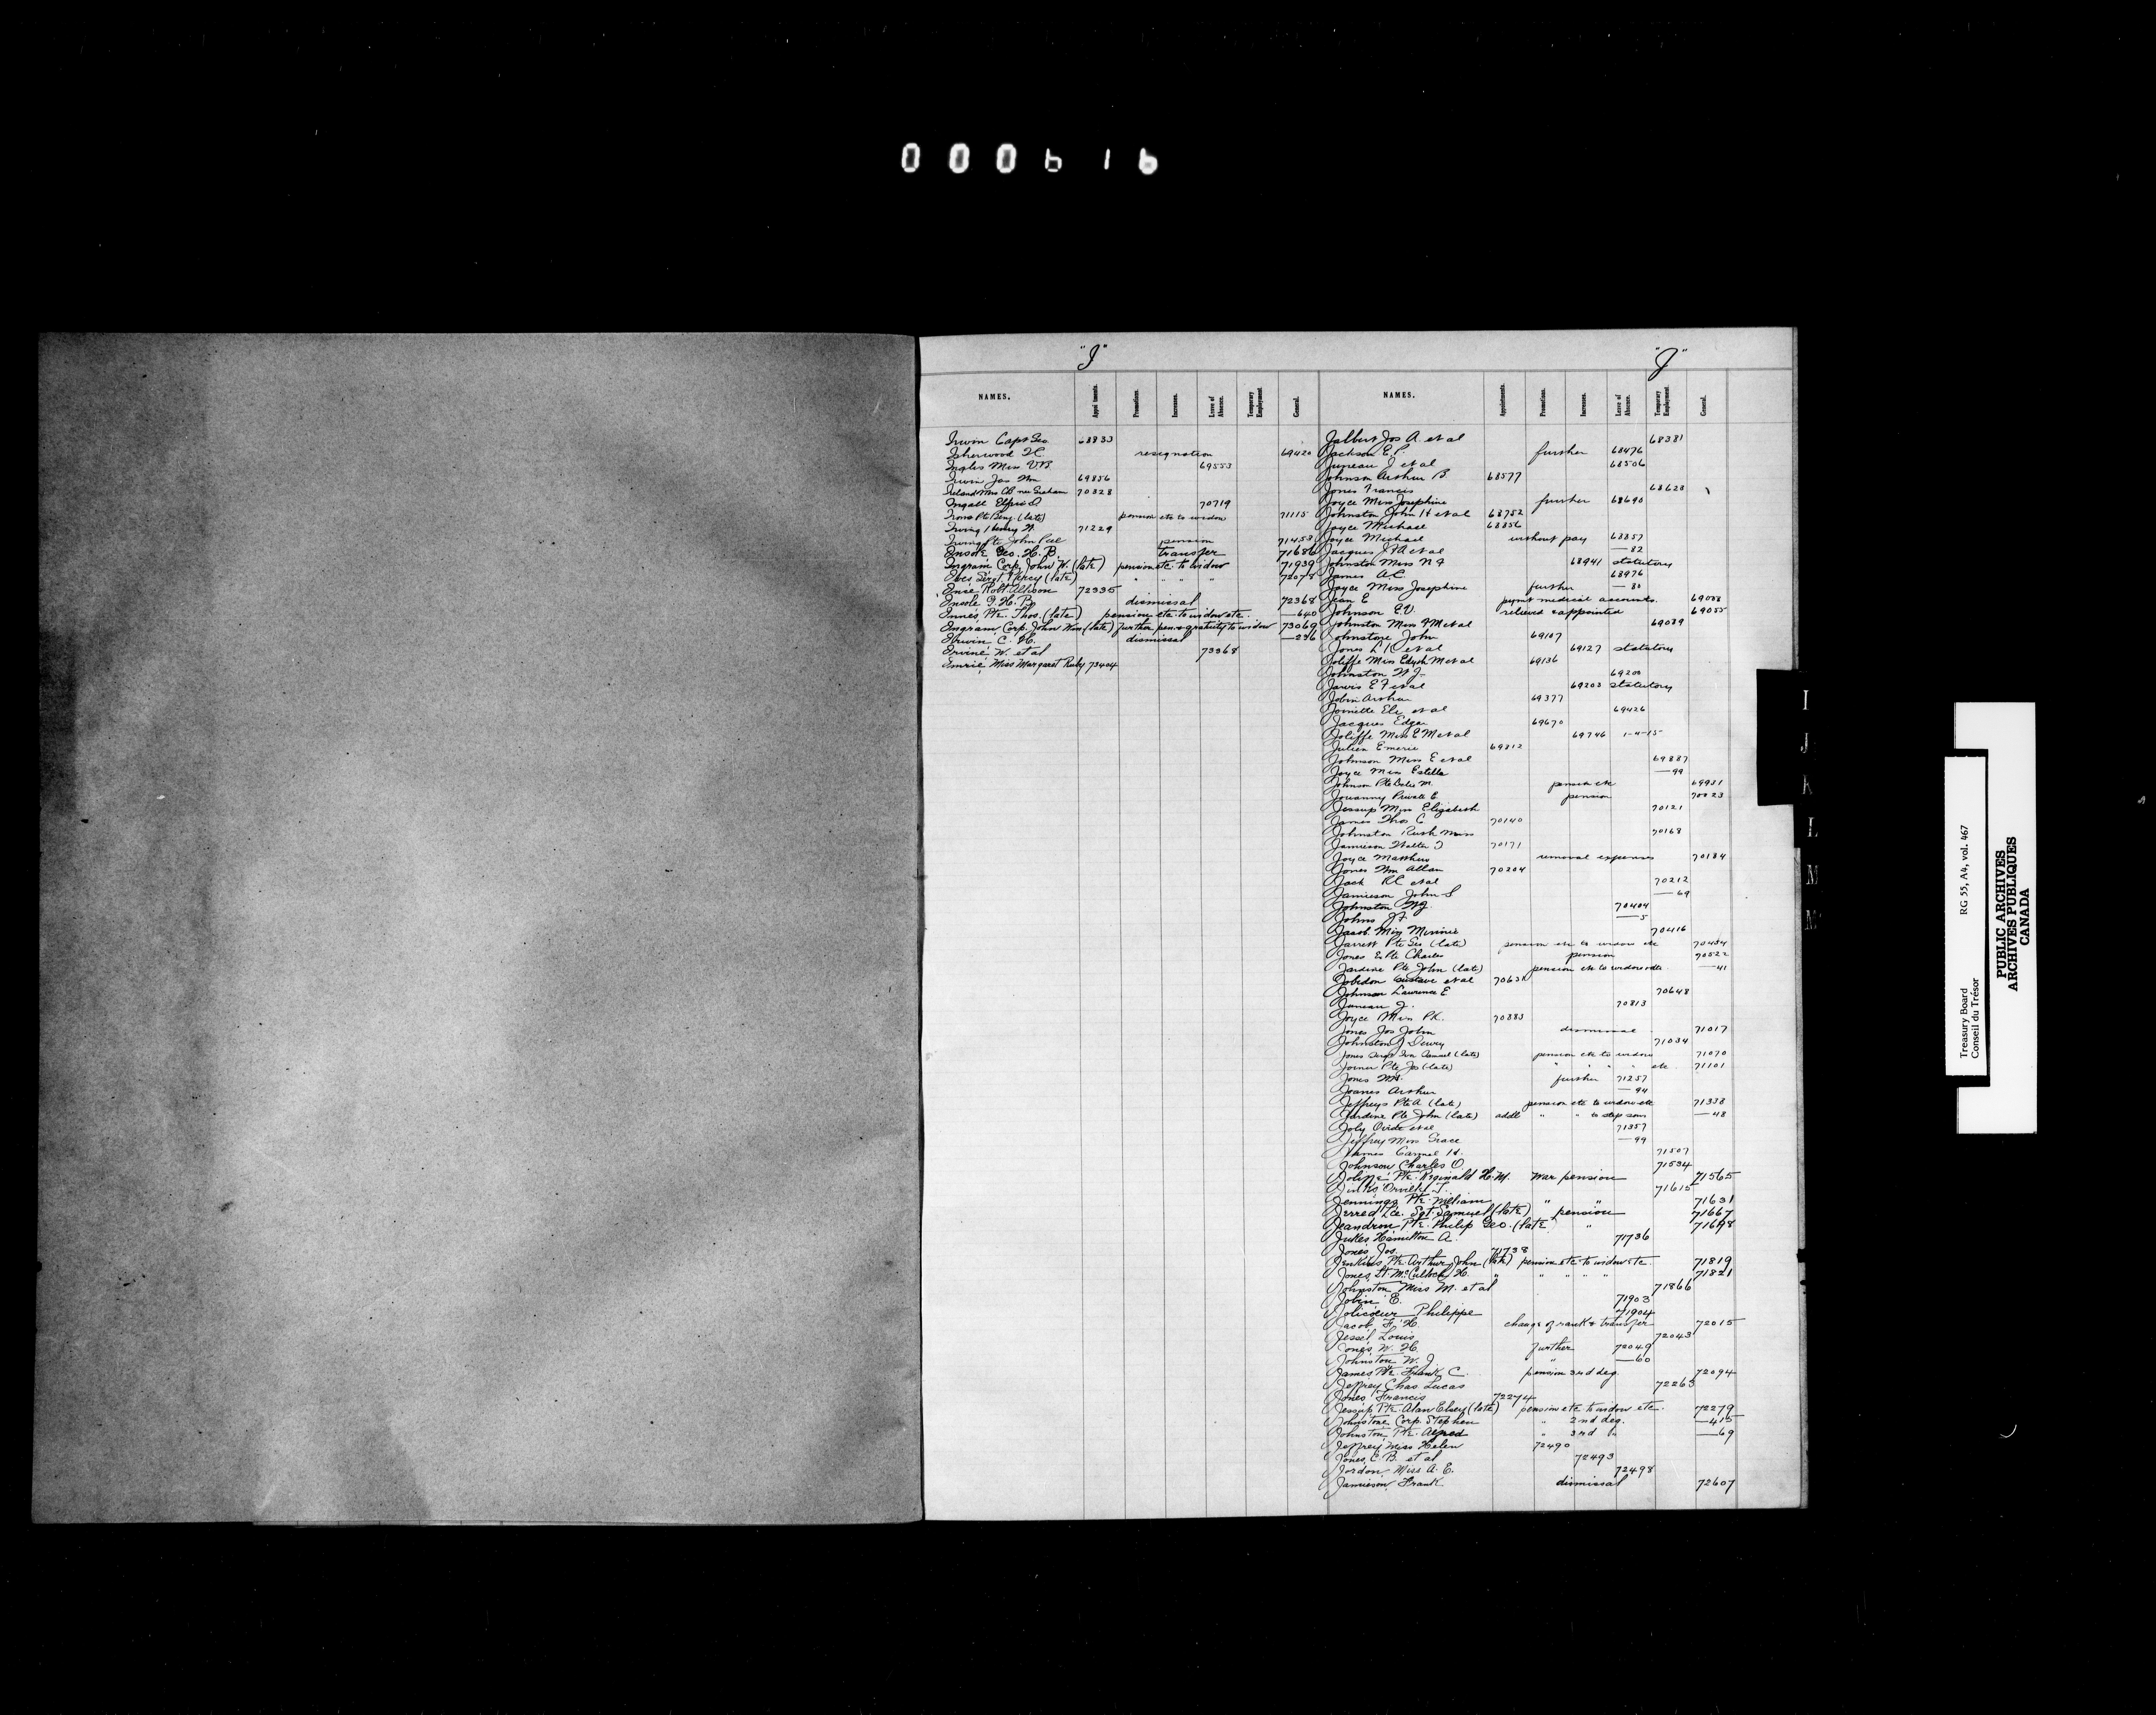 000616
"I"
NAMES. Appointments. Promotions. Increases. Leave of Absence. Temporary Employment. General.
Irwin Capt Geo. 68833
Isherwood H. resignation 69420
Ingles Miss V.B. 69553
Irwin Jas Wm 69856
Ireland Mrs nee Graham 70328
Ingall 70719
Irons Pte Benj (late) pension etc to widow 71115
Irving Henry W. 71229
Irving Pte John pension 71453
Insole Geo. H. B. transfer 71686
Ingram Corp. John W. (late) pension etc. to widow 71939
Ives Sergt. Percy (late) " " " " 72078
Robt. Allison 72335
Insole G. H. B. dismissal 72368
Innes Pte. Thos. (late) pension etc to widow etc. —640
Ingram Corp. John Wm (late) further pen. & gratuity to widow 73069
Irwin C. H. dismissal —296
Irvine W. et al 73368
Imrie Miss Margaret Ruby 73404
"J"
NAMES. Appointments. Promotions. Increases. Leave of Absence. Temporary Employment. General.
Jalbert Jos A. et al 68381
Jackson E. P. further 68476
Juneau J et al 68506
Johnson Arthur B. 68577
Jones Francis 68623
Joyce Miss Josephine further 68690
Johnston John H et al 68752
Joyce Michael 68856
Joyce Michael without pay 68857
Jacques J A et al —82
Johnston Miss N F 68941 statutory
James A.C. 68976
Joyce Miss Josephine further —80
Jean E paymt medical accounts. 69033
Johnson E.V. relieved & appointed 69055
Johnston Miss M et al 69089
Johnstone John 69107
Jones L R et al 69127 statutory
Joliffe Miss Edyth M et al 69136
Johnston W J. 69200
Jarvis E F et al 69203 statutory
Jobin Arthur 69377
Ele et al 69426
Jacques Edgar 69670
Joliffe Miss E M et al 69746 1-4-15
Julien Emerie 69812
Johnson Miss E et al 69887
Joyce Miss Estella —99
Johnson Pte M. pension etc 69931
Jouanny Private E pension 70023
Jessup Miss Elizabeth 70121
James Thos C 70140
Johnston Ruth Miss 70168
Jamieson Walter J 70171
Joyce Matthew removal expenses 70184
Jones Wm Allan 70204
Jack R C et al 70212
Jamieson John S —69
Johnston W J. 70404
Johns J F —5
Jacob Miss Minnie 70416
Jarrett Pte Geo (late) pension etc to widow etc 70434
Jones Pte Charles pension 70522
Jardine Pte John (late) pension etc to widow etc. —41
Jobidon Gustave et al 70631
Johnson Laurence E. 70648
Juneau J. 70813
Joyce Miss P.K. 70883
Jones Jos John dismissal 71017
Johnston J Dewry 71034
Jones Sergt Samuel (late) pension etc to widow 71070
Joiner Pte Jos (late) " " " " etc 71101
Jones W H. further 71257
Joanes Arthur —94
Jeffreys Pte A (late) pension etc to widow etc 71338
Jardine Pte John (late) addl " " to step son —48
Joly Ovide et al 71357
Jeffrey Miss Grace —99
James Carmel H. 71507
Johnson Charles O 71534
Joliffe Pte. Reginald H.M. War pension 71565
Jinks Orville J. 71615
Jennings Pte. William " " 71631
Jerred Lce. Sgt. Samuel (late) " pension 71667
Jeandron Pte. Philip Geo. (late) " 71698
Jukes Hamilton A. 71736
Jones Jos. 71738
Jenkins Pte. Arthur John (late) pension etc to widow etc. 71819
Jones Lt. McCulloch H. " " " " " 71821
Johnston Miss M. et al 71866
Jobin E. 71903
Jolicoeur Philippe 71904
Jacob, F. H. change of rank & transfer 72015
Jessel Louis 72043
Jones W. H. further 72049
Johnston W. J. " —60
James Pte. Frank C. pension 3rd deg. 72094
Jeffrey Chas Lucas 72263
Jones Francis 72274
Jessup Pte. Alan Elsey (late) pension etc to widow etc. 72279
Johnstone Corp. Stephen " 2nd deg. —415
Johnston Pte. Alfred " 3rd " —69
Jeffrey Miss Helen 72490
Jones C. B. et al 72493
Jordon Miss A. E. 72498
Jamieson Frank dismissal 72607
I
J
K
L
M
Treasury Board RG 55, A4, vol. 467
Conseil du Trésor
PUBLIC ARCHIVES
ARCHIVES PUBLIQUES
CANADA